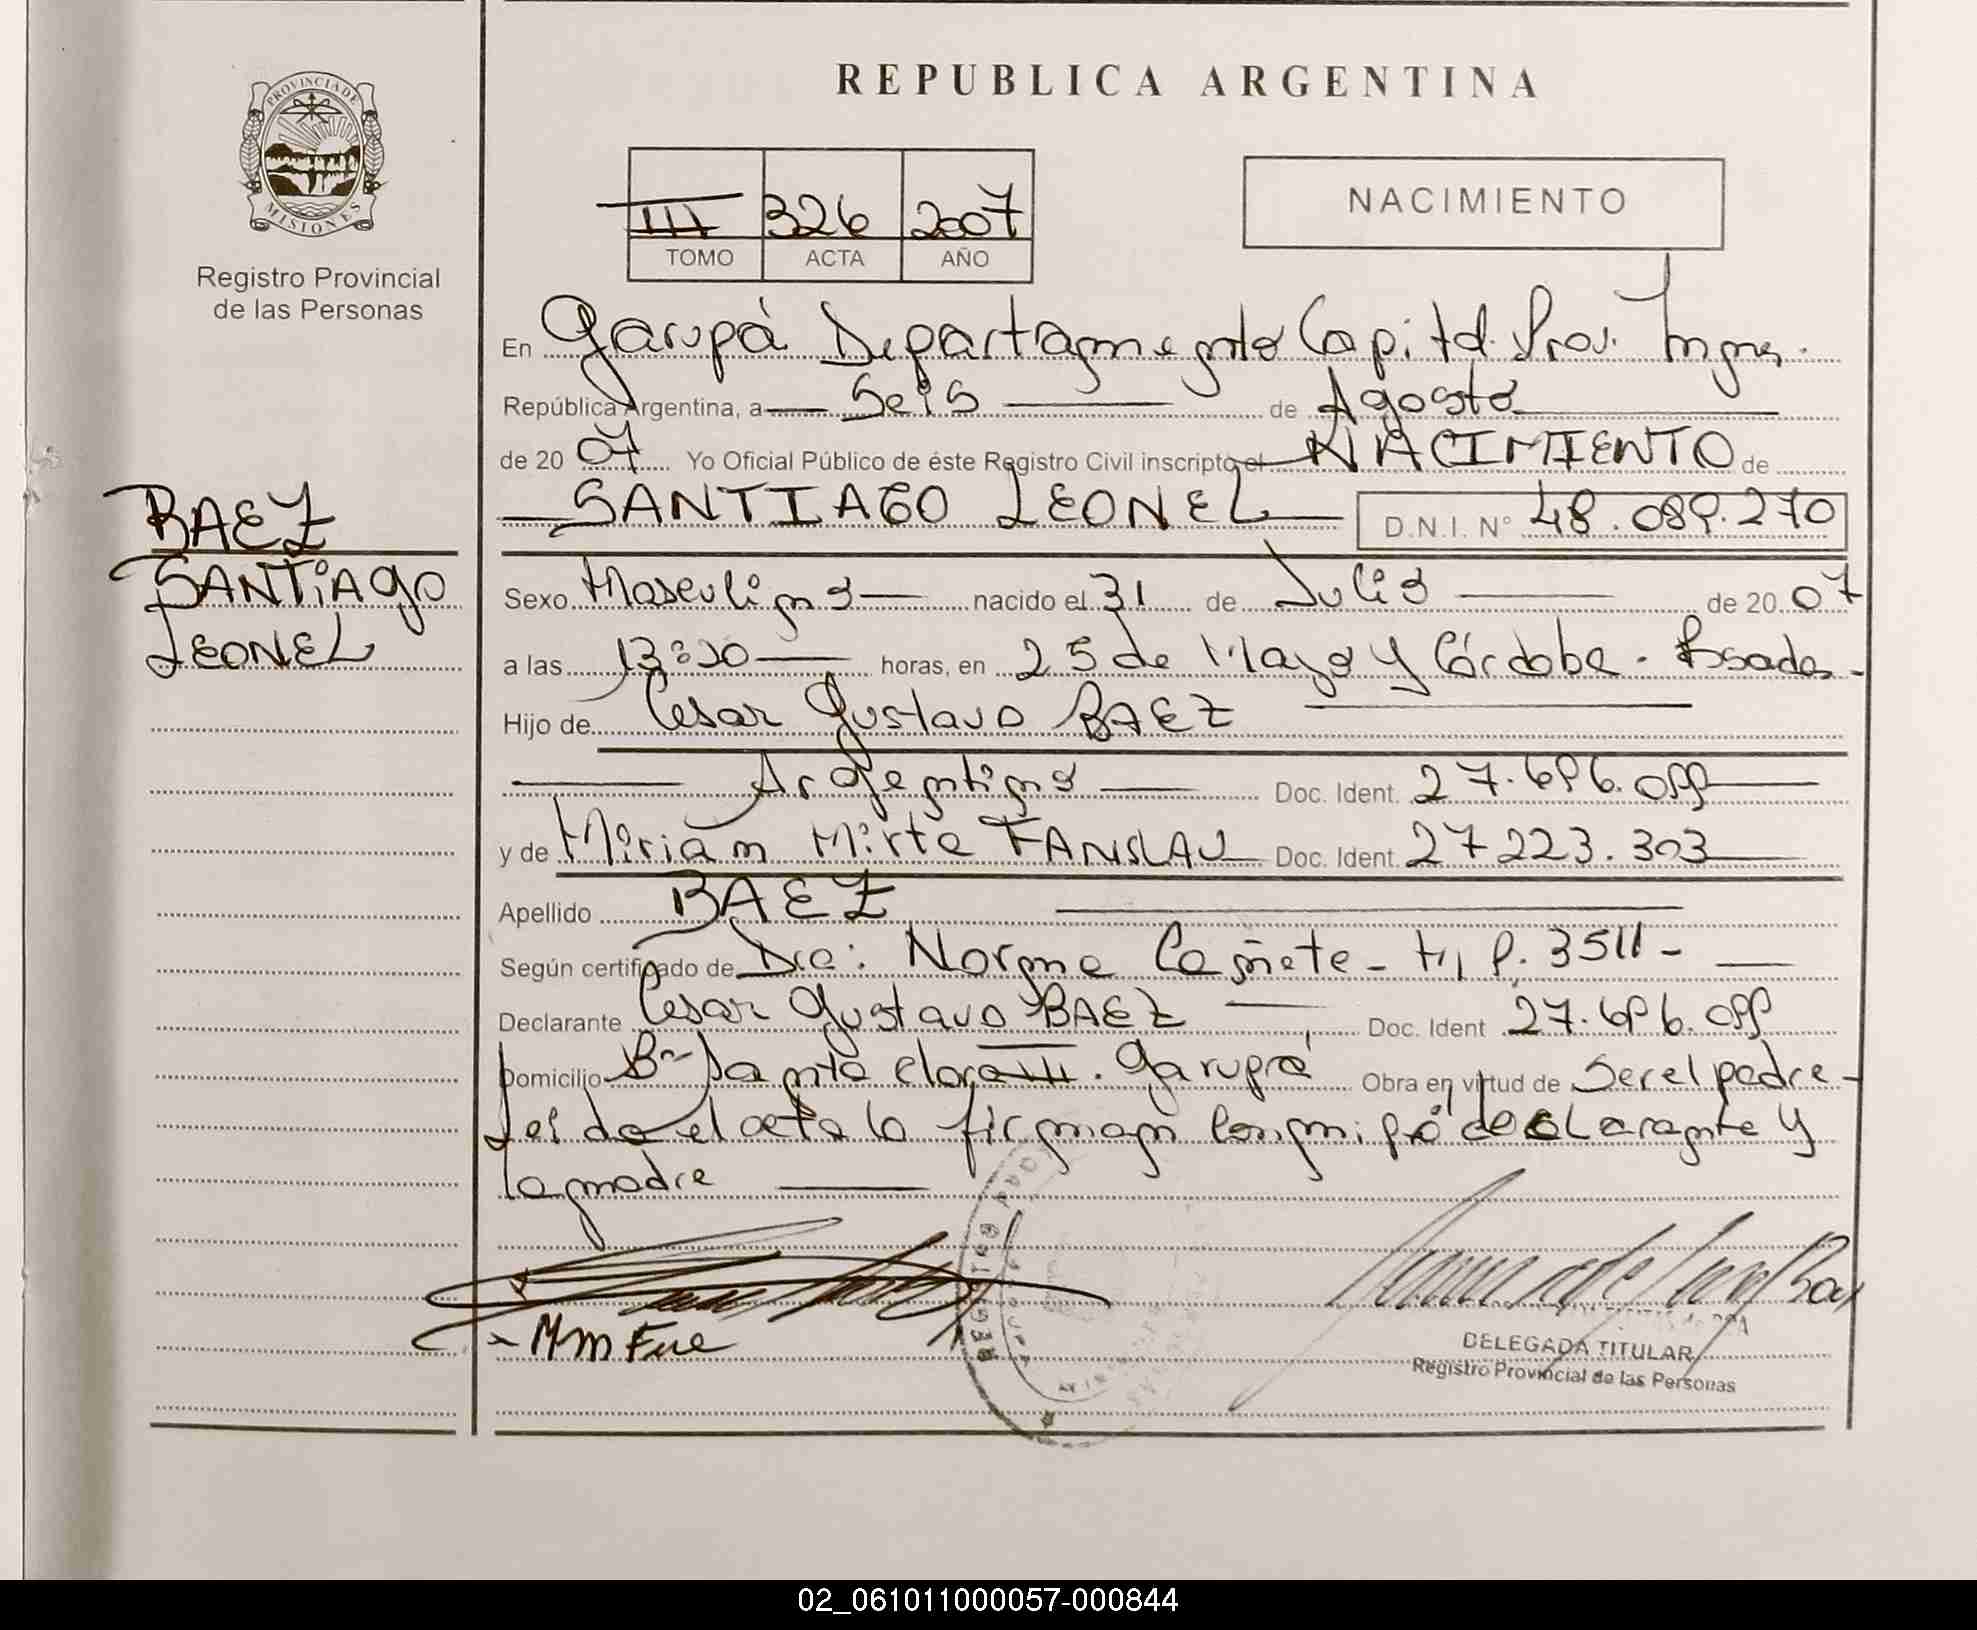 PROVINCIA DE
MISIONES
Registro Provincial
de las Personas
BAEZ
SANTiAgo
LEONEL
REPUBLICA ARGENTINA
III 326 2007
TOMO ACTA AÑO
NACIMIENTO
En Garupá Departamento Capital. Prov. Mnes.
República Argentina, a Seis de Agosto
de 20 07 Yo Oficial Público de éste Registro Civil inscripto el NACIMIENTO de
SANTIAGO LEONEL D.N.I. N° 48.089.270
Sexo Masculino nacido el 31 de Julio de 20 07
a las 13:20 horas, en 25 de Mayo y Córdoba. Posadas
Hijo de Cesar Gustavo BAEZ
Argentino Doc. Ident. 27.696.099
y de Miriam Mirta FANSLAU Doc. Ident. 27 223.303
Apellido BAEZ
Según certificado de Dra: Norma Cañete - M. P. 3511 -
Declarante Cesar Gustavo BAEZ Doc. Ident 27.696.099
Domicilio B° Santa Clara III. Garupá Obra en virtud de Ser el padre -
Leida el acta la firman conmigo declarante y
la madre
DELEGADA TITULAR
Registro Provincial de las Personas
02_061011000057-000844